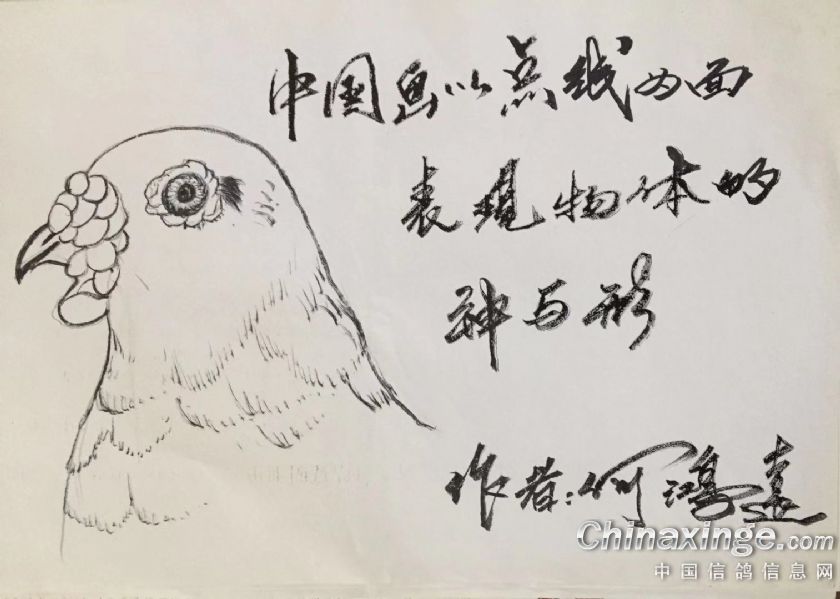 中国画以点线为面
表现物体的
神与形
作者:何鸿远
Chinaxinge.com
中国信鸽信息网